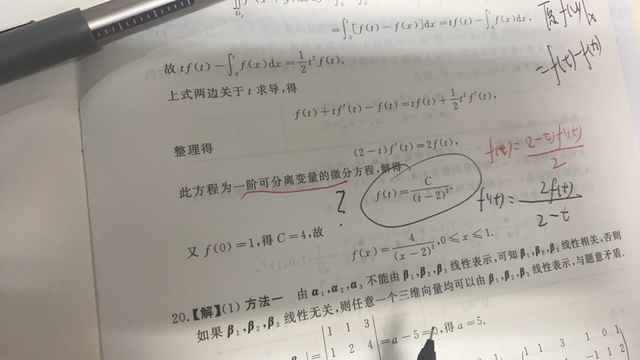 =∫₀ᵗ[f(t)-f(x)]dx=tf(t)-∫₀ᵗf(x)dx,
故 tf(t)-∫₀ᵗf(x)dx=1/2 t²f(t).
上式两边关于 t 求导,得
f(t)+tf′(t)-f(t)=tf(t)+1/2 t²f′(t),
整理得
(2-t)f′(t)=2f(t).
f(t)=(2-t)f'(t)/2
此方程为一阶可分离变量的微分方程,解得
?
f(t)=C/(t-2)².
f'(t)=2f(t)/2-t
又 f(0)=1,得 C=4,故
f(x)=4/(x-2)²,0≤x≤1.
=f(t)-f(0)
20.【解】(1) 方法一 由 α₁,α₂,α₃ 不能由 β₁,β₂,β₃ 线性表示,可知 β₁,β₂,β₃ 线性相关,否则
如果 β₁,β₂,β₃ 线性无关,则任意一个三维向量均可以由 β₁,β₂,β₃ 线性表示,与题意矛盾.
|1 1 3
1 2 4|=a-5=0,得 a=5.